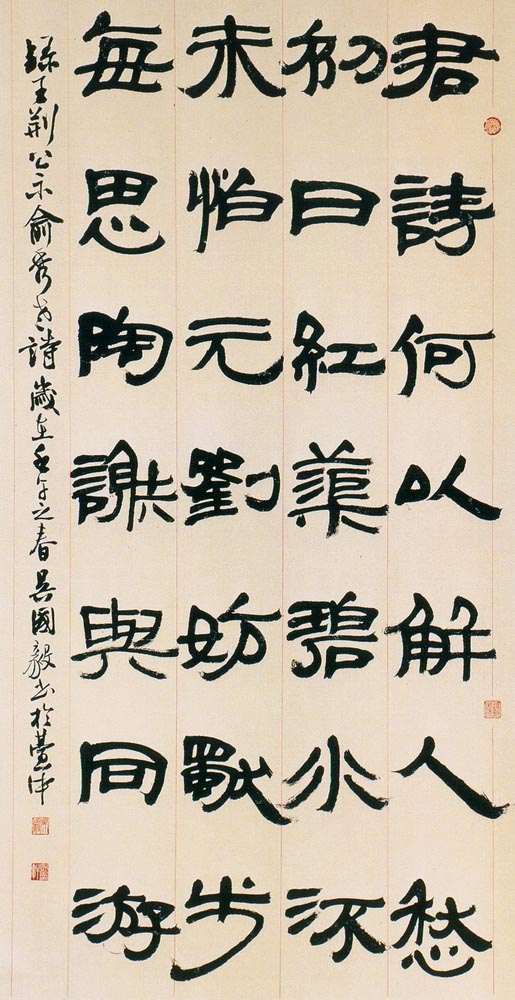 君詩何以解人愁
初日紅蕖碧水流
未怕元劉妨獨步
每思陶謝與同游
錄王荊公示俞秀老詩歲在壬午之春吳國毅書於臺